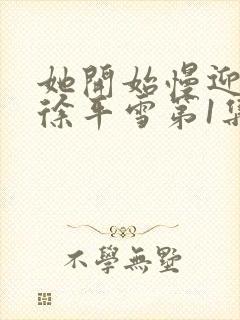 她開始慢迎
徐平雪第1集
不學無墅